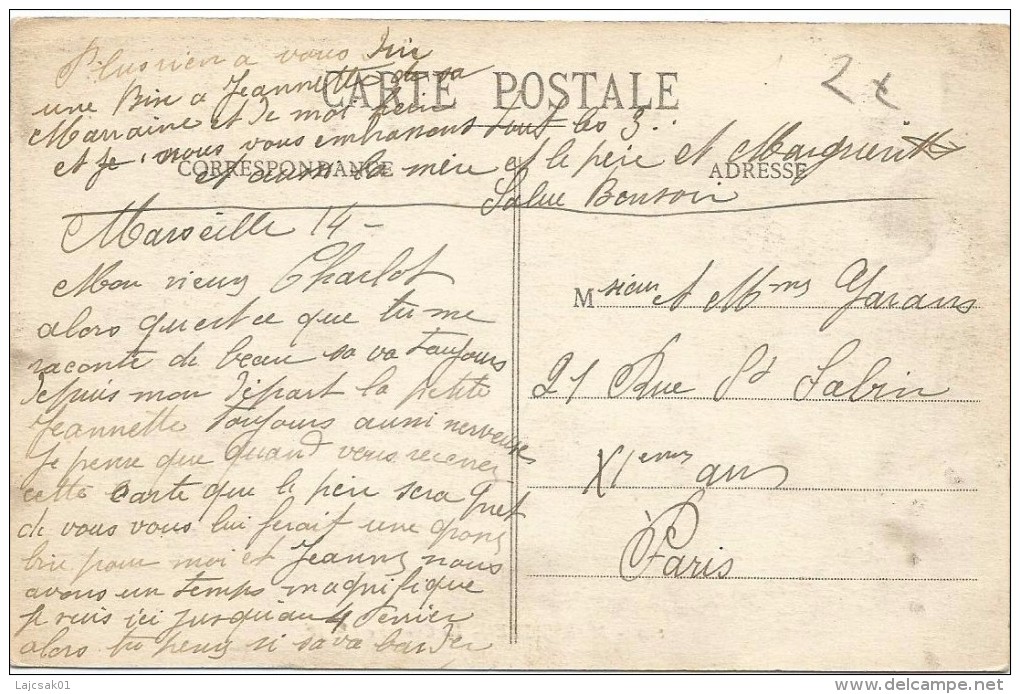 Plus rien a vous dire
une Bise a Jeannette de sa
Marraine et de moi
et je vous embrassons tout les 3.
et aussi la mère et le père et Marguerite
Salue Bonsoir
2 €
CARTE POSTALE
CORRESPONDANCE
ADRESSE
Marseille 14 -
Mon vieux Charlot
alors qu'est ce que tu me
raconte de beau sa va toujours
depuis mon départ la petite
Jeannette toujours aussi nerveuse
Je pense que quand vous recevrez
cette carte que le père sera
de vous vous lui ferait une
bise pour moi et Jeanne nous
avons un temps magnifique
je suis ici jusqu'au 4 Fevrier
alors tu pense si sa va barder
Msieur et Mme
21 Rue St Sabin
XIeme arr
à Paris
Lajcsak01
www.delcampe.net